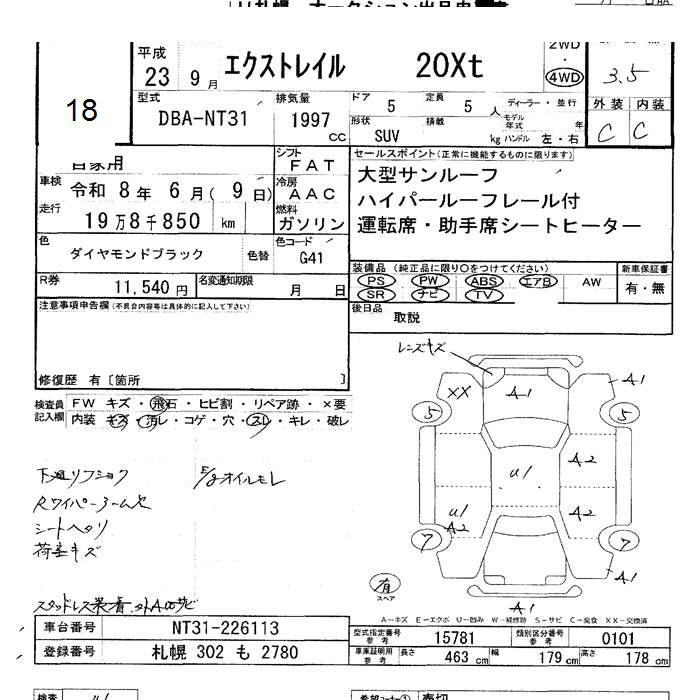 平成 23 9月 エクストレイル 20Xt 2WD 4WD 3.5
18
型式 DBA-NT31 排気量 1997 cc ドア 5 定員 5 人 ディーラー・並行 外装 内装
形状 SUV 積載 kg モデル年式 年 ハンドル 左・右 C C
自家用 シフト FAT セールスポイント(正常に機能するものに限ります)
車検 令和 8年 6月( 9日) 冷房 AAC 大型サンルーフ
走行 19万8千850 km 燃料 ガソリン ハイパールーフレール付
運転席・助手席シートヒーター
色 ダイヤモンドブラック 色替 色コード G41
装備品(純正品に限り○をつけてください) 新車保証書
R券 11,540円 名変通知期限 月 日 PS PW ABS エアB AW 有・無
SR ナビ TV
注意事項申告欄(不具合内容等は具体的に記入して下さい) 後日品 取説
修復歴 有〔箇所 〕
レンズキズ
検査員記入欄 FW キズ・飛石・ヒビ割・リペア跡・×要
内装 キズ・汚レ・コゲ・穴・スレ・キレ・破レ
XX A1 A1
5 5
U1 A2
U1 A2 A2
7 7
A1
A1
下廻リフショク E/gオイルモレ
Rワイパーアームサビ
シートヘタリ
荷室キズ
有 スペア
A-キズ E-エクボ U-凹み W-補修跡 S-サビ C-腐食 XX-交換済
車台番号 NT31-226113 型式指定番号 参考 15781 類別区分番号 参考 0101
登録番号 札幌 302 も 2780 車庫証明用 参考 長さ 463 cm 幅 179 cm 高さ 178 cm
検査